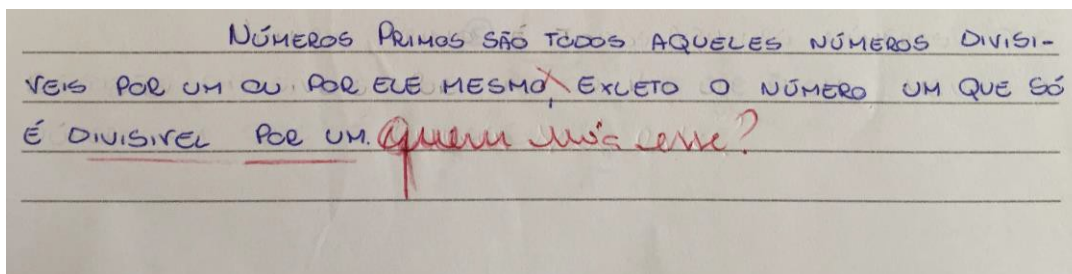 NÚMEROS PRIMOS SÃO TODOS AQUELES NÚMEROS DIVISI-
VEIS POR UM OU POR ELE MESMO, EXCETO O NÚMERO UM QUE SÓ
É DIVISIVEL POR UM. Quem esse?